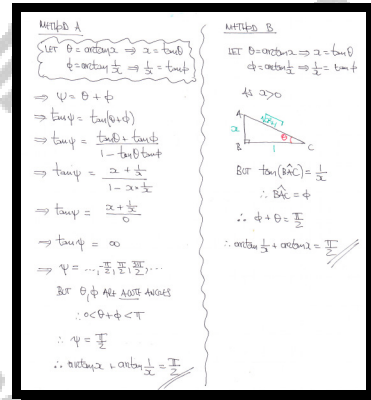 METHOD A
LET θ = arctanx ⇒ x = tanθ
φ = arctan 1/x ⇒ 1/x = tanφ
⇒ ψ = θ + φ
⇒ tanψ = tan(θ+φ)
⇒ tanψ = (tanθ + tanφ)/(1 - tanθ tanφ)
⇒ tanψ = (x + 1/x)/(1 - x × 1/x)
⇒ tanψ = (x + 1/x)/0
⇒ tanψ = ∞
⇒ ψ = ..., -π/2, π/2, 3π/2, ...
BUT θ, φ ARE ACUTE ANGLES
∴ 0 < θ + φ < π
∴ ψ = π/2
∴ arctanx + arctan 1/x = π/2
METHOD B
LET θ = arctanx ⇒ x = tanθ
φ = arctan 1/x ⇒ 1/x = tanφ
AS x > 0
A
√(x²+1)
x
θ
B
1
C
BUT tan(BÂC) = 1/x
∴ BÂC = φ
∴ φ + θ = π/2
∴ arctan 1/x + arctanx = π/2